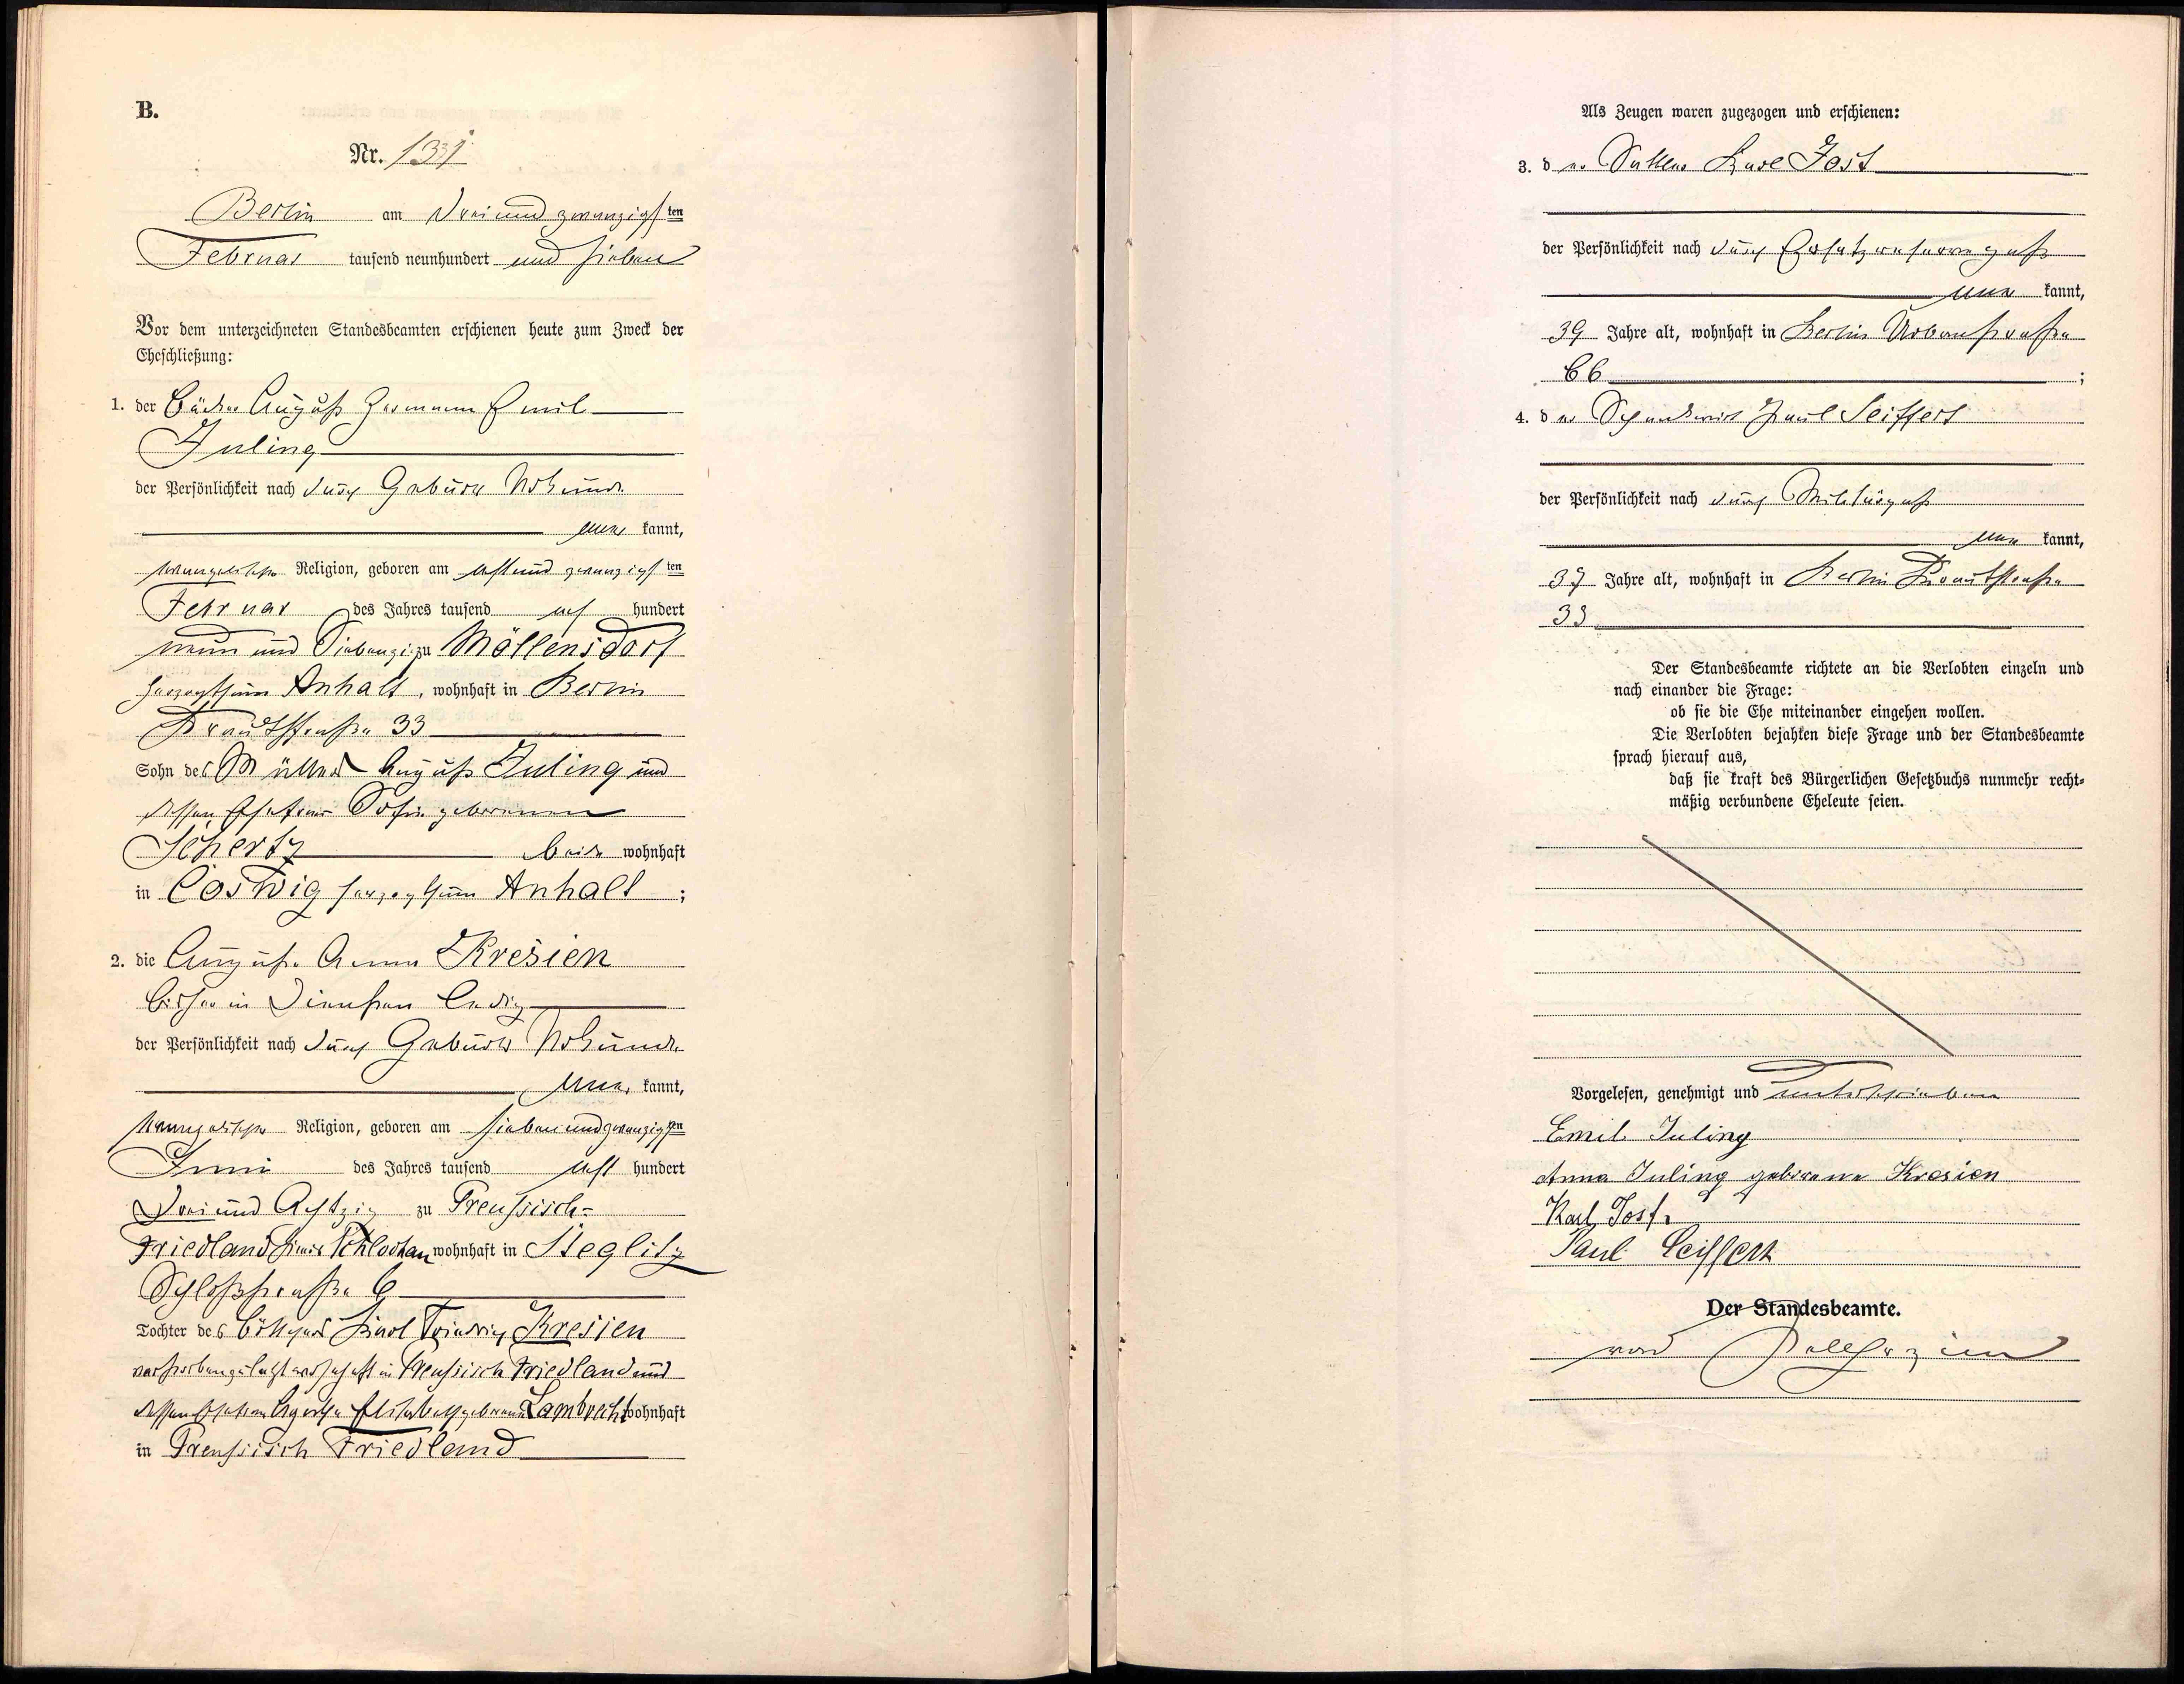 B.
Nr. 131
Berlin am drei und zwanzigsten
Februar tausend neunhundert und sieben
Vor dem unterzeichneten Standesbeamten erschienen heute zum Zweck der
Eheschließung:
1. der Bäcker August Hermann Emil
Juling
der Persönlichkeit nach durch Geburts Urkunde
aner kannt,
evangelischer Religion, geboren am acht und zwanzigsten
Februar des Jahres tausend acht hundert
neun und Siebenzig zu Möllensdorf
Herzogthum Anhalt, wohnhaft in Berlin
Krautstraße 33
Sohn des Müllers August Juling und
dessen Ehefrau Sofie geborenen
Schertz beide wohnhaft
in Coswig Herzogthum Anhalt;
2. die Auguste Anna Kresien
bisher in Diensten ledig
der Persönlichkeit nach durch Geburts Urkunde
aner kannt,
evangelischer Religion, geboren am sieben und zwanzigsten
Juni des Jahres tausend acht hundert
drei und Achtzig zu Preussisch-
Friedland Kreis Schlochau wohnhaft in Steglitz
Schloßstraße 6
Tochter des Böttchers Karl Friedrich Kresien
verstorben zuletzt wohnhaft in Preussisch Friedland und
dessen Ehefrau Elisabeth geborenen Lambrecht wohnhaft
in Preussisch Friedland
Als Zeugen waren zugezogen und erschienen:
3. der Sattler Karl Jost
der Persönlichkeit nach durch Ersatzreservepaß
aner kannt,
39 Jahre alt, wohnhaft in Berlin Urbanstraße
66;
4. der Schankwirt Paul Seiffert
der Persönlichkeit nach durch Militärpaß
aner kannt,
37 Jahre alt, wohnhaft in Berlin Krautstraße
33
Der Standesbeamte richtete an die Verlobten einzeln und
nach einander die Frage:
ob sie die Ehe miteinander eingehen wollen.
Die Verlobten bejahten diese Frage und der Standesbeamte
sprach hierauf aus,
daß sie kraft des Bürgerlichen Gesetzbuchs nunmehr recht-
mäßig verbundene Eheleute seien.
Vorgelesen, genehmigt und unterschrieben
Emil Juling
Anna Juling geborene Kresien
Karl Jost
Paul Seiffert
Der Standesbeamte.
von